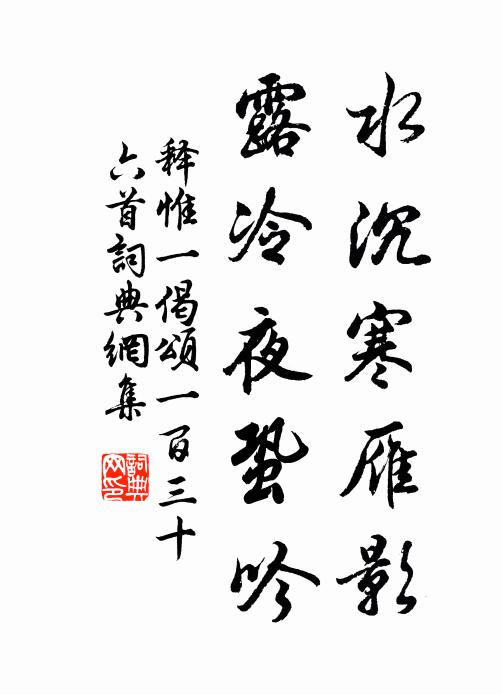 水沉寒雁影
露冷夜蛩吟
释惟一偈頌一百三十
六首詞典網集
詞典
网印